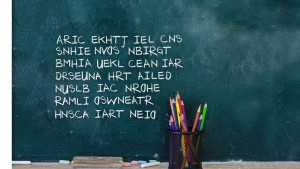 ARIC EKHTT IEL CNS
SNHIE NVOS NBIRGT
BMHIA UEKL CEAN IAR
DRSEUNA HRT AILED
NUSLB IAC NROHE
RAMLI OSWNEATR
HNSCA IART NEIO